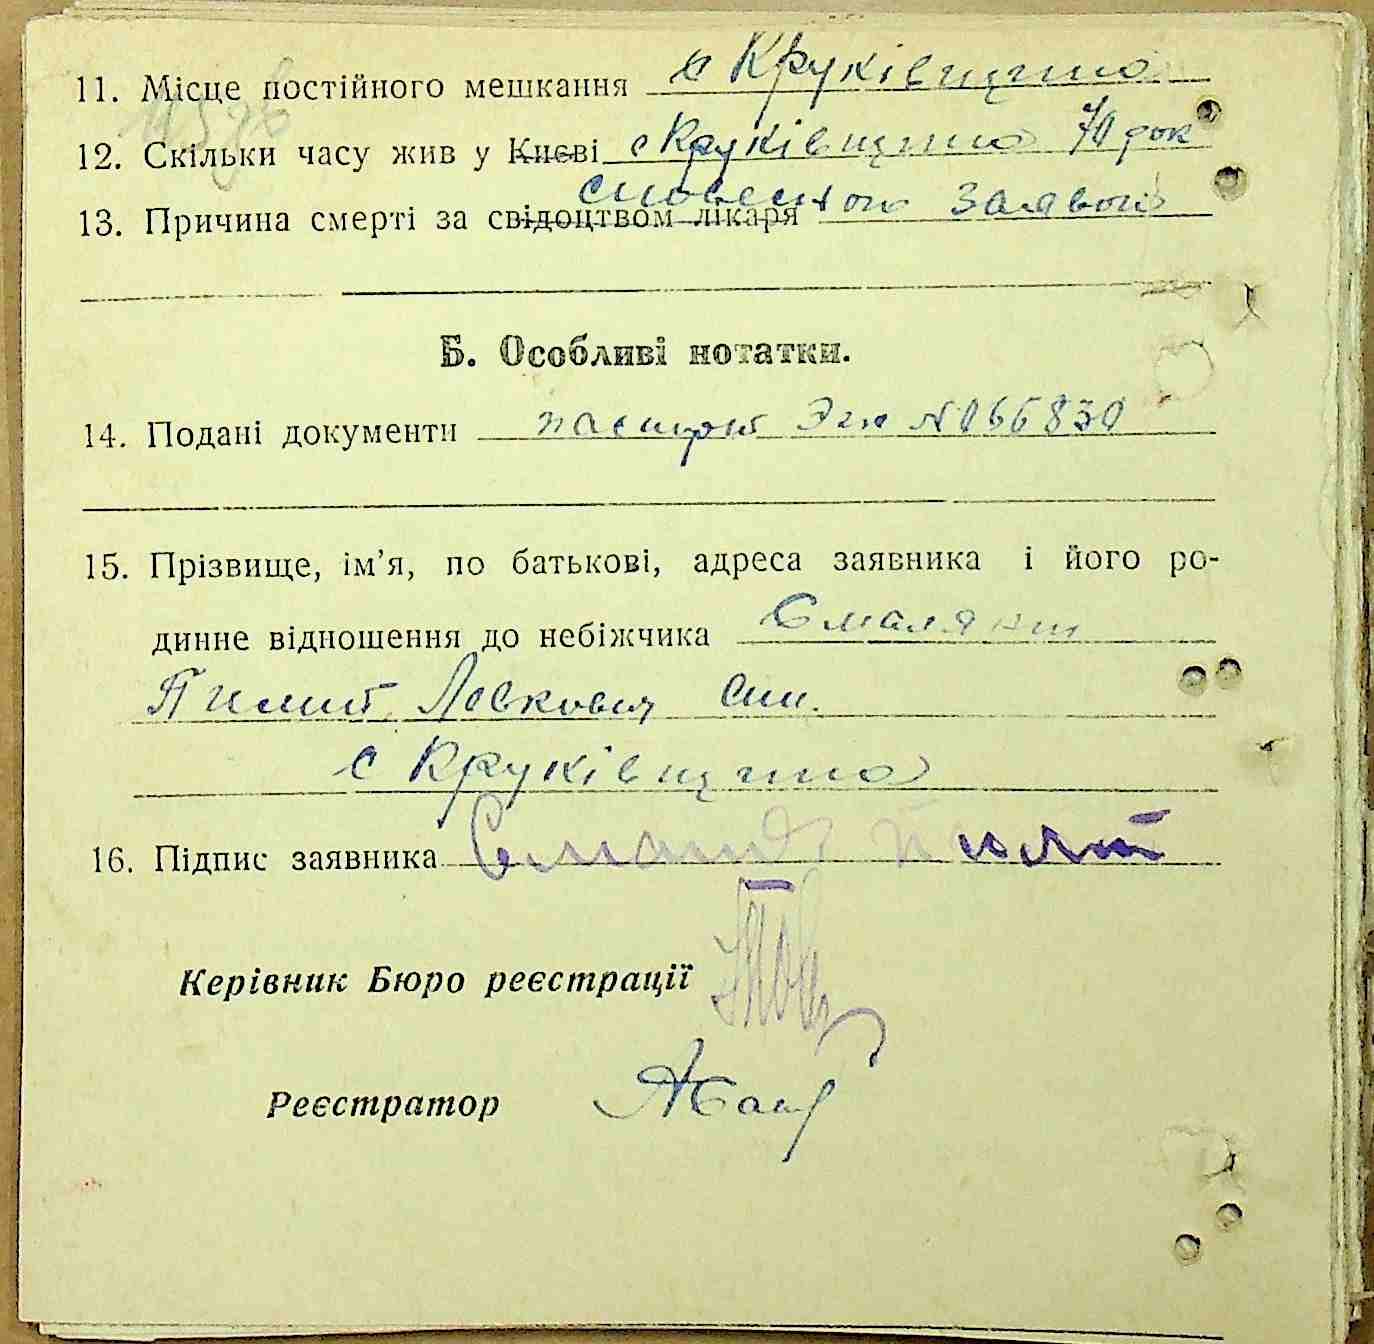 11. Місце постійного мешкання с Круківщина
12. Скільки часу жив у Києві с Круківщина 70 рок
словесною заявою
13. Причина смерті за свідоцтвом лікаря
Б. Особливі нотатки.
14. Подані документи паспорт № 066830
15. Прізвище, ім’я, по батькові, адреса заявника і його ро-
динне відношення до небіжчика
Пилип Левкович син.
с Круківщина
16. Підпис заявника
Керівник Бюро реєстрації
Реєстратор